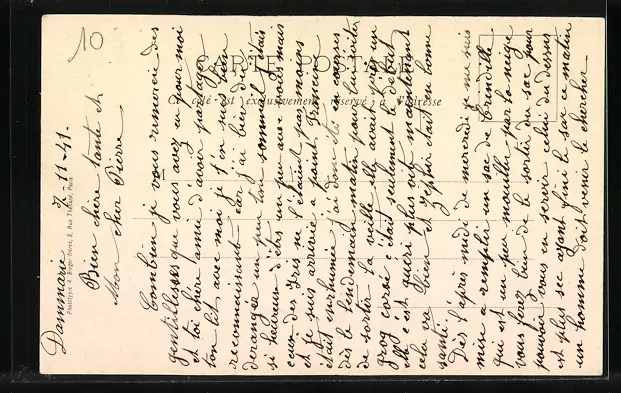 10
CARTE POSTALE
Ce côté est exclusivement réservé à l'adresse
Phototypie A. Breger frères, 9, Rue Thénard, Paris
Dammarie 7-11-41.
Bien chère tante et
Mon cher Pierre
Combien je vous remercie des
gentillesses que vous avez eu pour moi
et toi chère amie d'avoir partagé
ton lit avec moi je t'en suis
reconnaissante car j'ai bien dû
déranger un peu ton sommeil j'étais
si heureux d'être un peu avec vous mais
ceux des Iris ne l'étaient pas moins
et je suis arrivée à point, France
était enrhumée j'ai donc été en courses
dès le lendemain matin pour lui éviter
de sortir la veille elle avait pris un
grog corsé c'était seulement le début
elle s'est guéri plus vite maintenant
cela va bien et j'espère étant en bonne
santé.
Dès l'après midi de mercredi je me suis
mise à remplir un sac de
qui est un peu mouillé par la neige
vous ferez bien de le sortir du sac pour
pouvoir vous en servir celui du dessus
est plus sec ayant fini le sac ce matin
un homme doit venir le chercher.